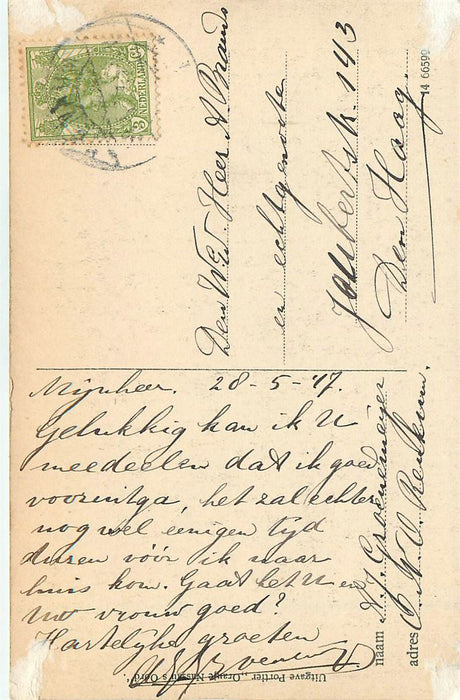 NEDERLAND
3 Ct
Den WEd. Heer A Brands
en echtgenoote
Joubertstr. 143
Den Haag.
14 66599
Mijnheer. 28-5-'17.
Gelukkig kan ik U
meedeelen dat ik goed
vooruitga, het zal echter
nog wel eenigen tijd
duren vóór ik naar
huis kom. Gaat het U en
Uw vrouw goed?
Hartelijke groeten
naam A J. Groenemeyer
adres O. N. O. Renkum.
Uitgave Portier „Oranje Nassau's Oord".